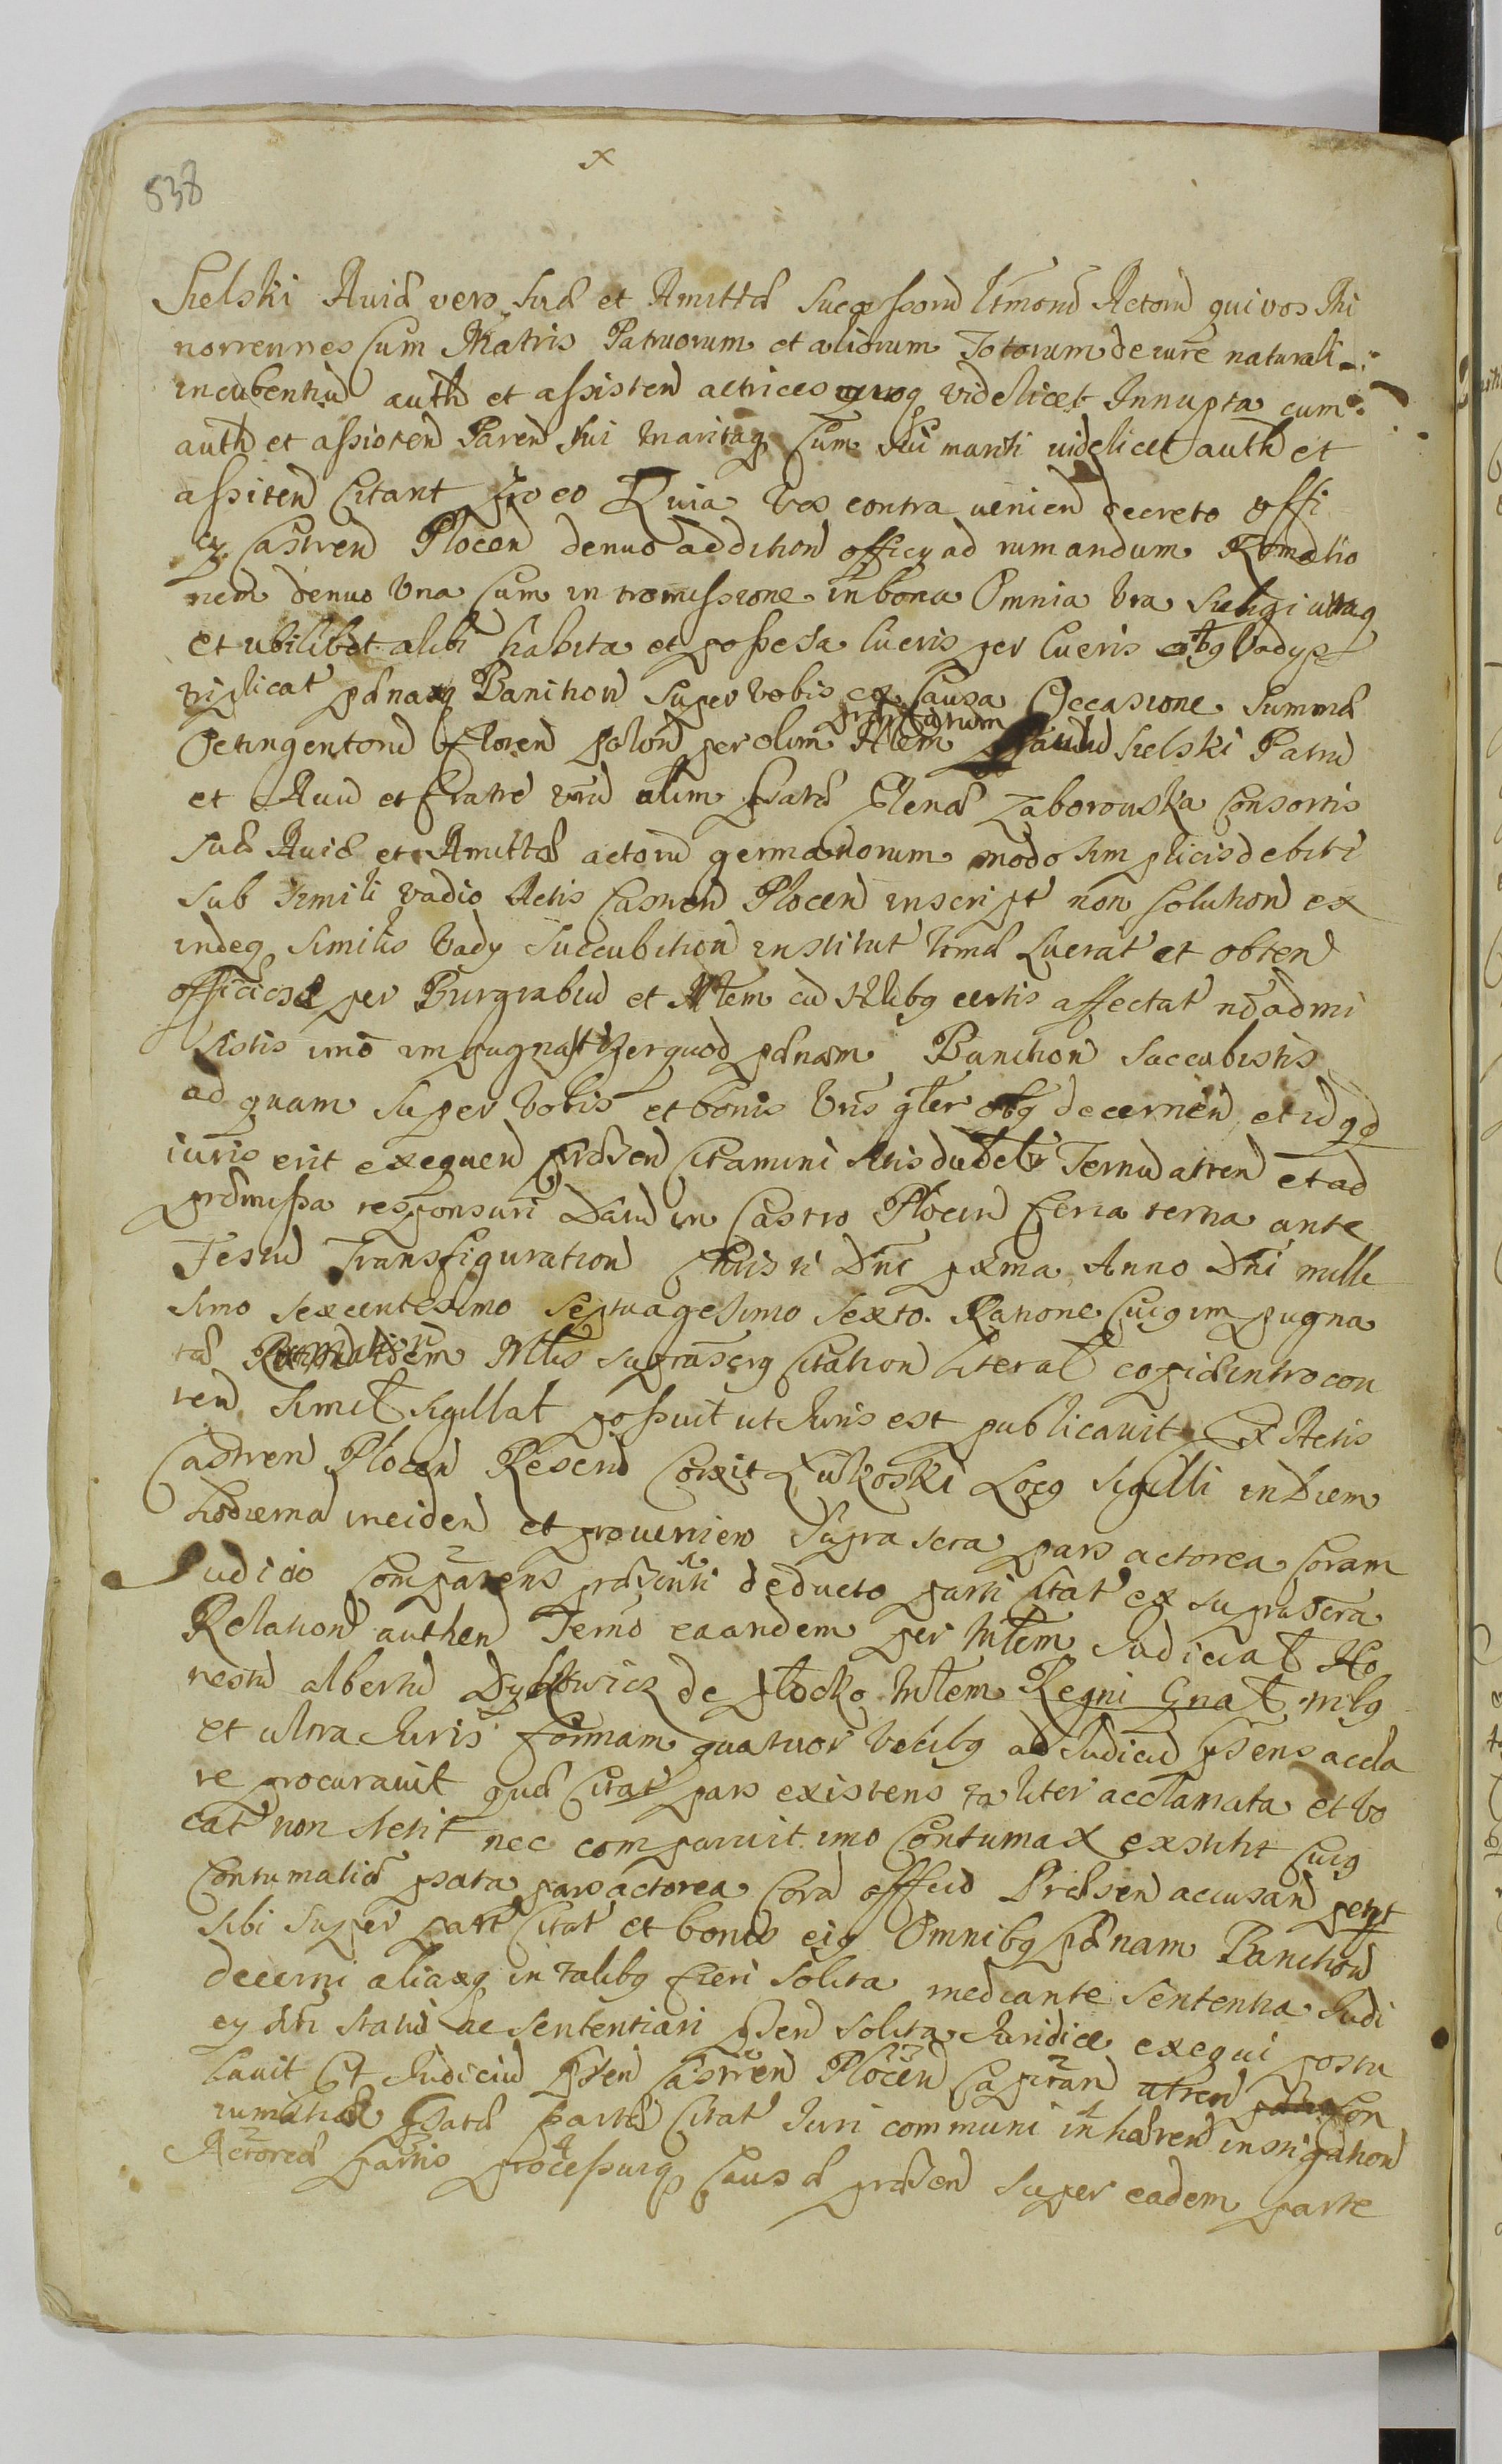 538
x
Sielski Auiæ vero suæ et Amittæ Successorū ltmorū Actorū qui vos Mi
norrennes cum Matris Patruorum et aliorum Totorum de iure naturali
incubentiū auth et assisten actrices quoq videlicet Innupta cum
auth et assisten Paren sui maritaq cum sui mariti videlicet auth et
assiten Citant Pro eo Quia vos contra venien decreto offi
cy Castren Plocen denuo addition officy ad rumandum Rumatio
nem denuo Vna cum intromissione in bona Omnia Vra Sielugi
et ubilibet alibi habita et possessa lueris per lueris Vadyp
riplicat pænaq Banition super vobis ex causa Occasione summæ
Octingentorū floren polon per olim Nblem Sielski Patrū
et Auū et Fratrē vrū olim psatæ Elenæ Zaborowska Consortis
suæ Auiæ et Amittæ actorū germanorum modo simplicis debiti
sub simili vadio Actis Castren Plocen inscript non solution ex
indeq similis Vady succubition institut ltmæ luerat et obten
officiosæ per Burgrabiū et Mlem cū Nlibq certis affectat nō admi
sistis imo impugnast per quod pænam Banition succubistis
ad quam super vobis et bonis Vris gler obq decernen et id qd
iuris erit exequen præsen citamini Terminū atten et ad
præmissa responsuri Datū in Castro Plocen feria terna ante
Festū Transfiguration Christi Dni pxma Anno Dni mille
simo sexcentesimo septuagesimo sexto. Ratione cuiq impugna
tæ Rumationem Mlis suprascrip Citation literal copiæ introcon
ten simil sigillat possuit ut Iuris est publicauit Ex Actis
Castren Plocen Resen Corexit Łuhoski Locq Sigilli in Diem
hodierna inciden et provenien supra scra pars actorea Coram
Iudicio comparens præsenti deducto parti citat ex suprascra
Relation authen Termo eaandem per Mlem Iudicial Ho
nestū albertū Dyktowicz de Płocko Mlem Regni Gnal tribq
et ultra Iuris formam quatuor vocibq ad Iudiciū psens accla
re procurauit quæ Citat pars existens taliter acclamata et vo
cat non stetit nec comparuit imo contumax exstitit cuiq
contumaciæ psata pars actorea Corā officio Præsen accusan petit
sibi super part Citat et bonis eiq Omnibq pænam Banition
decerni aliaq in talibq fieri solita mediante sententia Iudi
cy dni statui ac sententiari psen solita Iuridice exequi postu
lauit Et Iudiciū psen Castren Plocen Capitan atten con
tumatia psatæ partis Citat Iuri communi inhæren instigation
Actoreæ partis processuiq causæ præsen super eadem parte